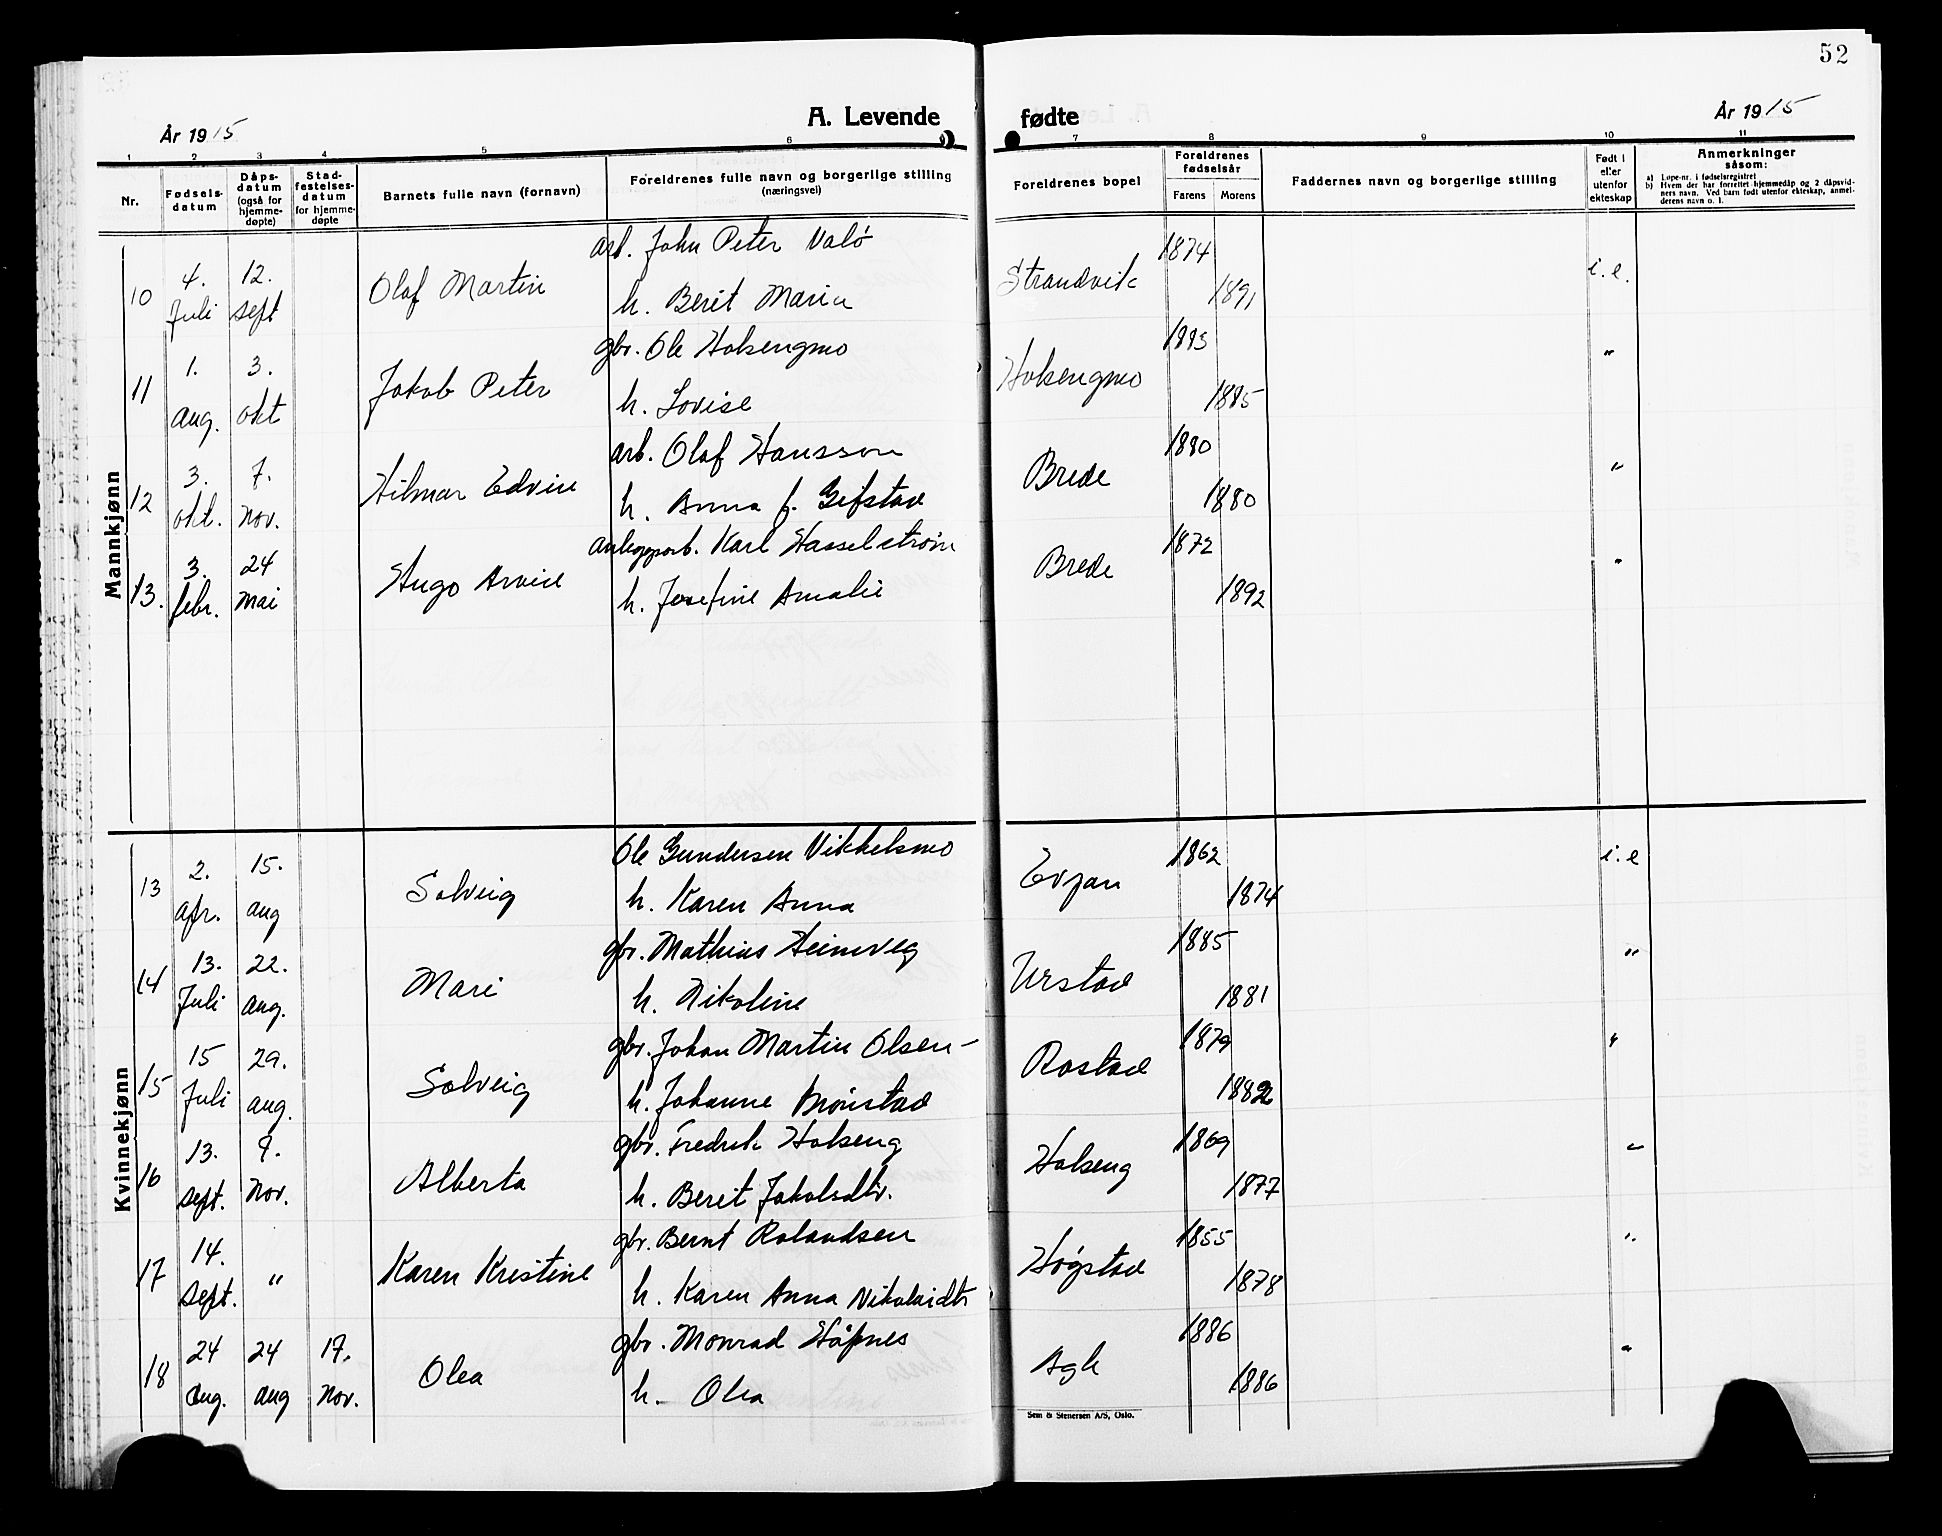 52
A. Levende fødte
År 1915
År 1915
1 2 3 4 5 6 7 8 9 10 11
Nr.
Fødsels-datum
Dåps-datum (også for hjemme-døpte)
Stad-festelses-datum for hjemme-døpte
Barnets fulle navn (fornavn)
Foreldrenes fulle navn og borgerlige stilling (næringsvei)
Foreldrenes bopel
Foreldrenes fødselsår
Farens Morens
Faddernes navn og borgerlige stilling
Født i eller utenfor ekteskap
Anmerkninger såsom:
a) Løpe-nr. i fødselsregistret
b) Hvem der har forrettet hjemmedåp og 2 dåpsvidners navn. Ved barn født utenfor ekteskap, anmelderens navn o. l.
Mannkjønn
arb. John Peter Valø 1874
10 4. Juli 12. sept Olaf Martin Strandvik i.e.
h. Berit Maria 1891
gbr. Ole Holsengmo 1883
11 1. aug. 3. okt Jakob Peter Holsengmo "
h. Lovise 1885
arb. Olaf Hansson 1880
12 3. okt. 7. nov. Hilmar Edvin Brede "
h. Anna f. Geifstad 1880
anleggsarb. Karl Hasselstrøm 1872
13. 3. febr. 24 mai Hugo Arvid Brede "
h. Josefine Amalie 1892
Kvinnekjønn
Ole Gundersen Vikkelsmo 1862
13 2. apr. 15. aug Solveig Evjan i.e
h. Karen Anna 1874
gbr. Mathias Heimveg 1885
14 13. Juli 22. aug. Mari Urstad "
h. Nikoline 1881
gbr. Johan Martin Olsen- 1879
15 15 Juli 29. aug. Solveig Rostad "
h. Johanne Brønstad 1882
gbr. Fredrik Holseng 1869
16 13. sept. 7. nov. Alberta Holseng "
h. Berit Jakobsdtr. 1877
gbr. Bernt Rolandsen 1855
17 14. sept. " Karen Kristine Høgstad "
h. Karen Anna Nikolaidtr 1878
gbr. Monrad Håpnes 1886
18 24 aug. 24 aug 17. nov. Olea Agle "
h. Olea 1886
Sem & Stenersen A/S, Oslo.